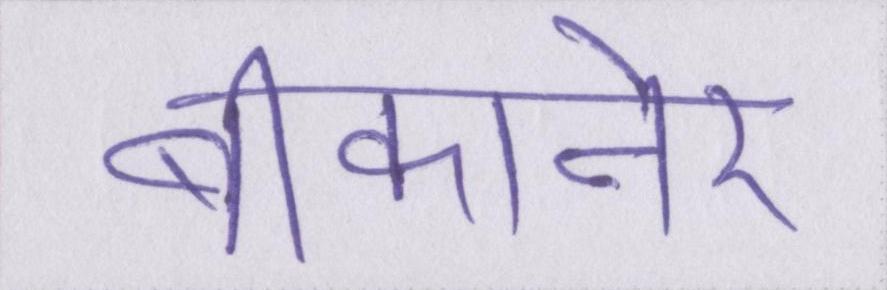 बीकानेर